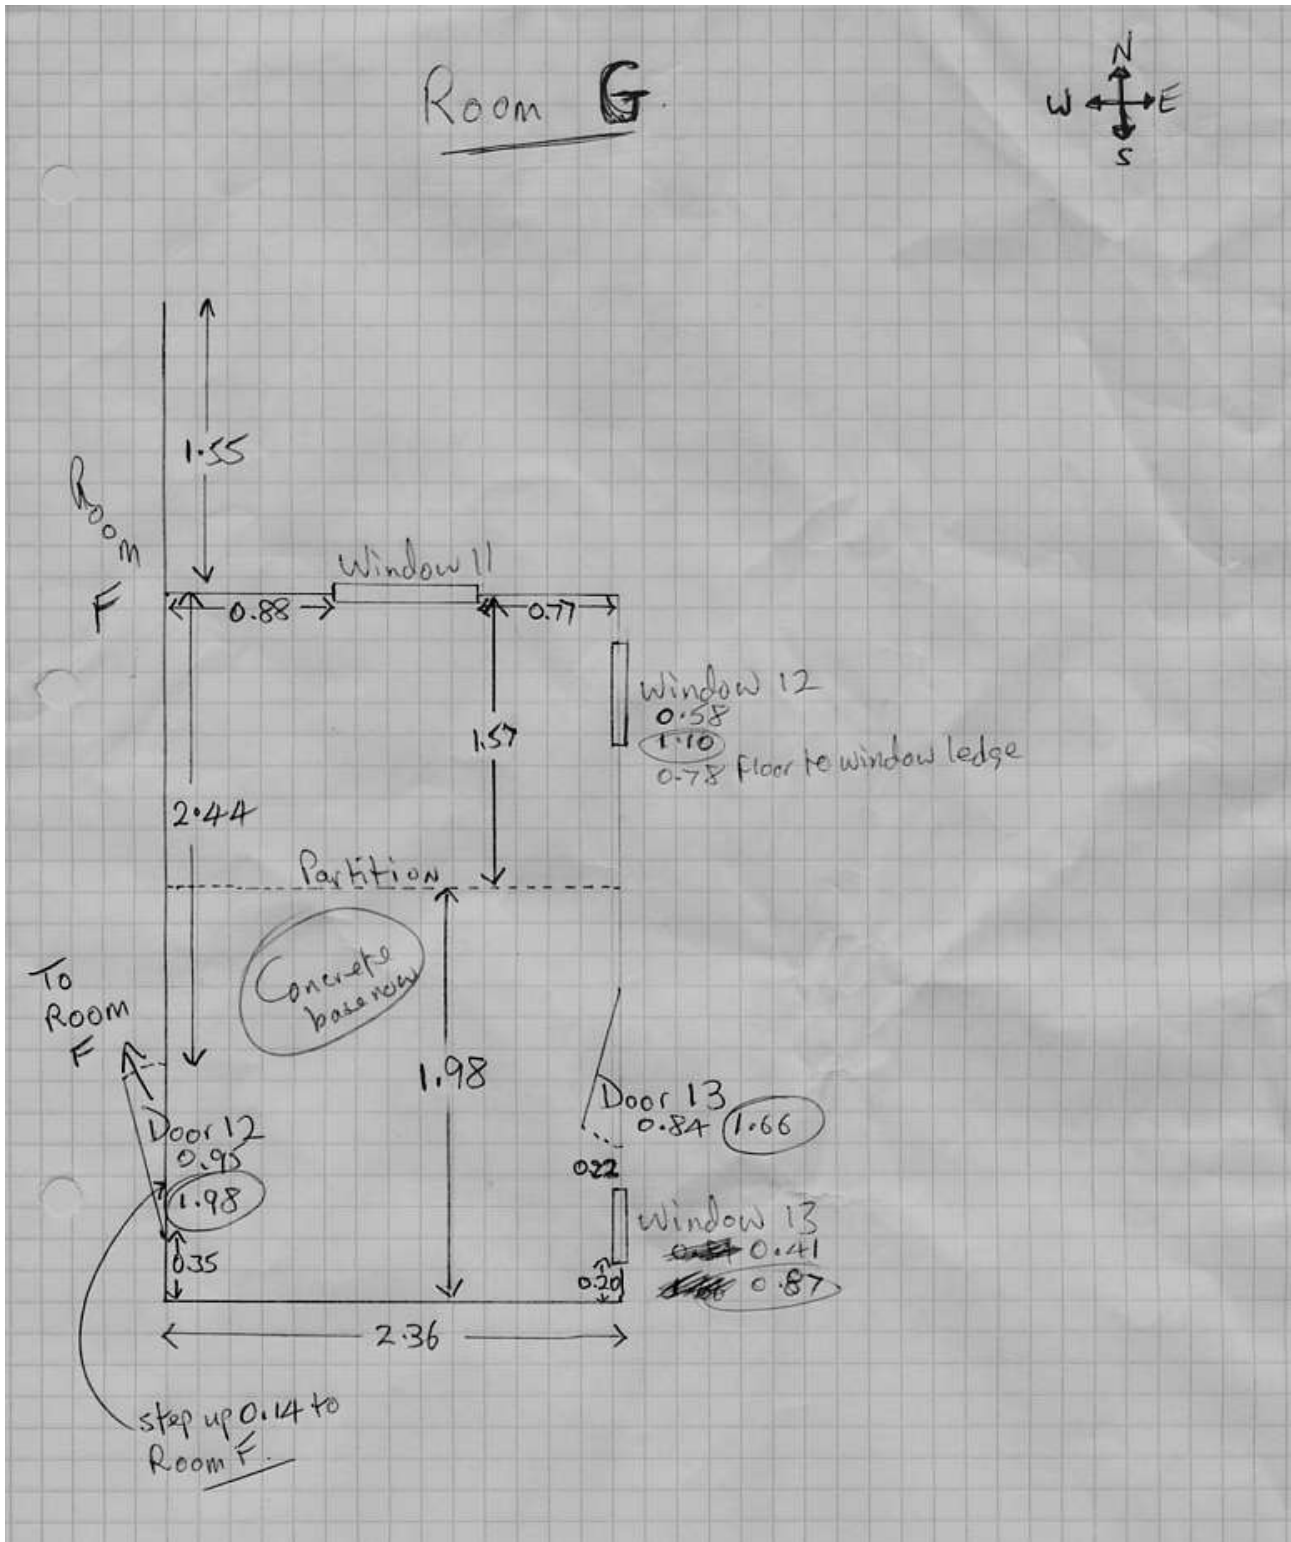 Room G.
N
W E
S
1.55
Room
F
Window 11
0.88
0.77
Window 12
0.58
1.10
0.78 Floor to window ledge
1.57
2.44
Partition
Concrete
base now
To
ROOM
F
1.98
Door 13
0.84 1.66
Door 12
0.95
1.98
0.22
Window 13
0.41
0.87
0.35
0.20
2.36
step up 0.14 to
Room F.